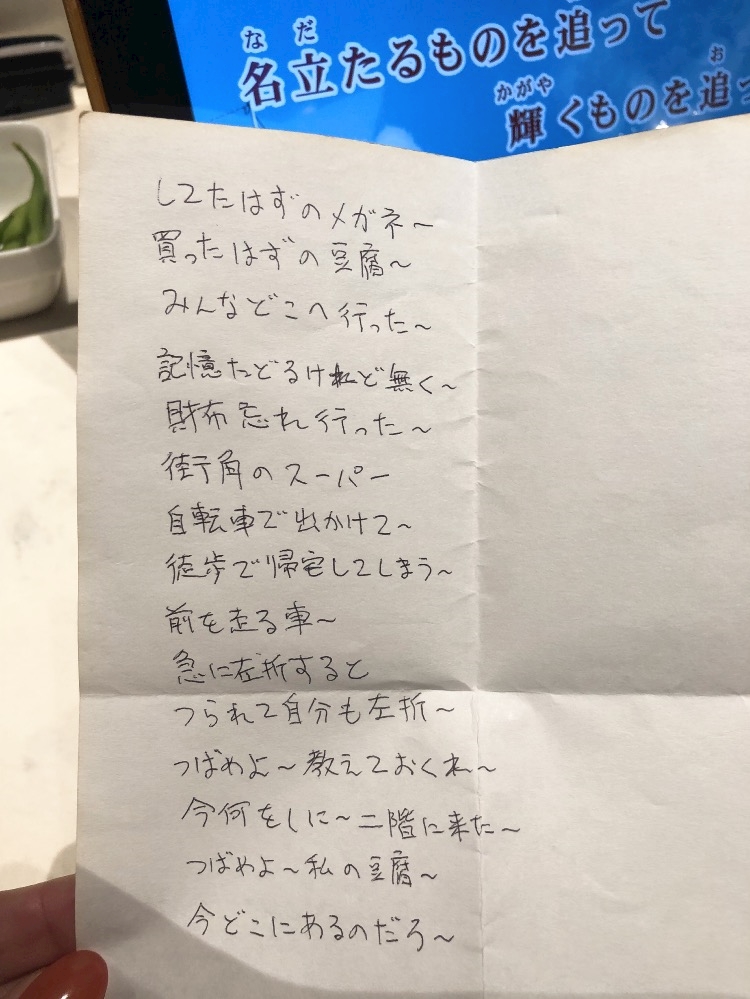 なだ
名立たるものを追って
かがや お
輝くものを追っ
してたはずのメガネ～
買ったはずの豆腐～
みんなどこへ行った～
記憶たどるけれど無く～
財布忘れ行った～
街角のスーパー
自転車で出かけて～
徒歩で帰宅してしまう～
前を走る車～
急に左折すると
つられて自分も左折～
つばめよ～教えておくれ～
今何をしに～二階に来た～
つばめよ～私の豆腐～
今どこにあるのだろ～